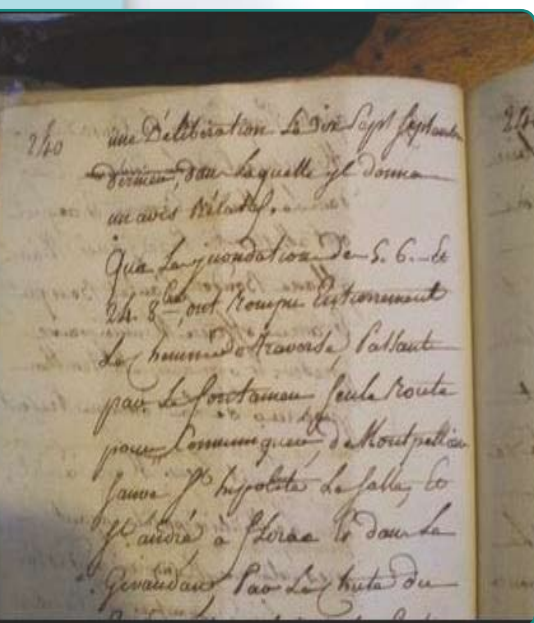 240
une Délibération Le dix Sept Septembre
dernier, dans Laquelle jl donna
un avis Rélatif.
Que Les jnondations des 5. 6. Et
24. 8bre, ont Rompu Entierement
Le Chemin de traverse, Passant
par Le fontanieu Seule Route
pour Communiquer, de Montpellier
Sauve St hippolite La Salle, Et
St andré à florac Et dans Le
Gevaudan, Par La Chute du